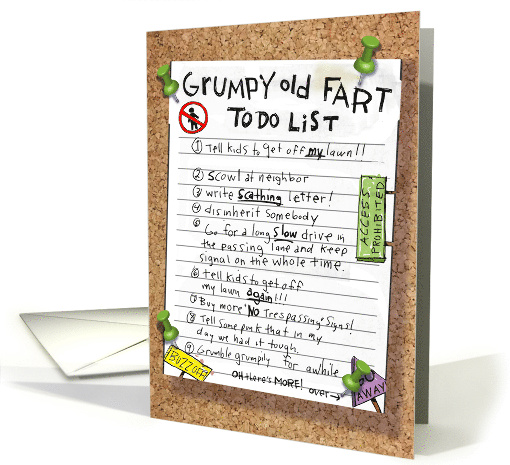 GRUMPY old FART
TO DO LIST
① Tell kids to get off my lawn!!
② Scowl at neighbor
③ write Scathing letter!
④ disinherit Somebody
⑤ Go for a long Slow drive in
the passing lane and keep
signal on the whole time.
⑥ tell kids to get off
my lawn again!!!
⑦ Buy more "NO Trespassing" Signs!
⑧ Tell some punk that in my
day we had it tough.
⑨ Grumble grumpily for awhile
OH there's MORE! over →
ACCESS
PROHIBITED
BUZZ OFF!
GO
AWAY